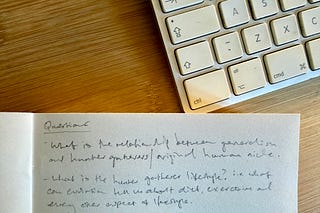 A S
Z X
ctrl alt cmd
Questions
- What is the relationship between generalism
and hunter gatherers / original human niche.
- What is the hunter gatherer lifestyle? i.e what
can evolution tell us about diet, exercise and
every other aspect of lifestyle.